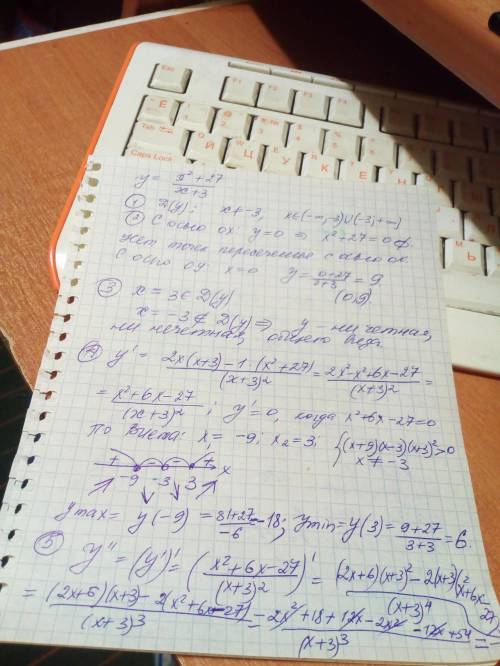 Esc F1 F2 F3 F4
Tab
Caps Lock
y = x²+27 / x+3
① D(y): x≠-3, x∈(-∞;-3)∪(-3;+∞)
② С осью ox: y=0 ⇒ x²+27=0 ∅.
Нет точек пересечения с осью ox.
С осью oy x=0 y= 0+27 / 0+3 = 9
(0;9)
③ x = 3 ∈ D(y)
x = -3 ∉ D(y) ⇒ y - ни четная,
ни нечетная, общего вида
④ y' = 2x(x+3)-1·(x²+27) / (x+3)² = 2x²-x²+6x-27 / (x+3)² =
= x²+6x-27 / (x+3)² ; y'=0, когда x²+6x-27=0
По Виета: x₁=-9; x₂=3; {(x+9)(x-3)(x+3)²>0
x≠-3
+ - - + x
-9 -3 3
ymax= y(-9) = 81+27 / -6 = -18; ymin=y(3)= 9+27 / 3+3 = 6.
⑤ y'' = (y')' = (x²+6x-27 / (x+3)²)' = (2x+6)(x+3)²-2(x+3)(x²+6x-27) / (x+3)⁴ =
= (2x+6)(x+3)-2(x²+6x-27) / (x+3)³ = 2x²+18+12x-2x²-12x+54 / (x+3)³ =